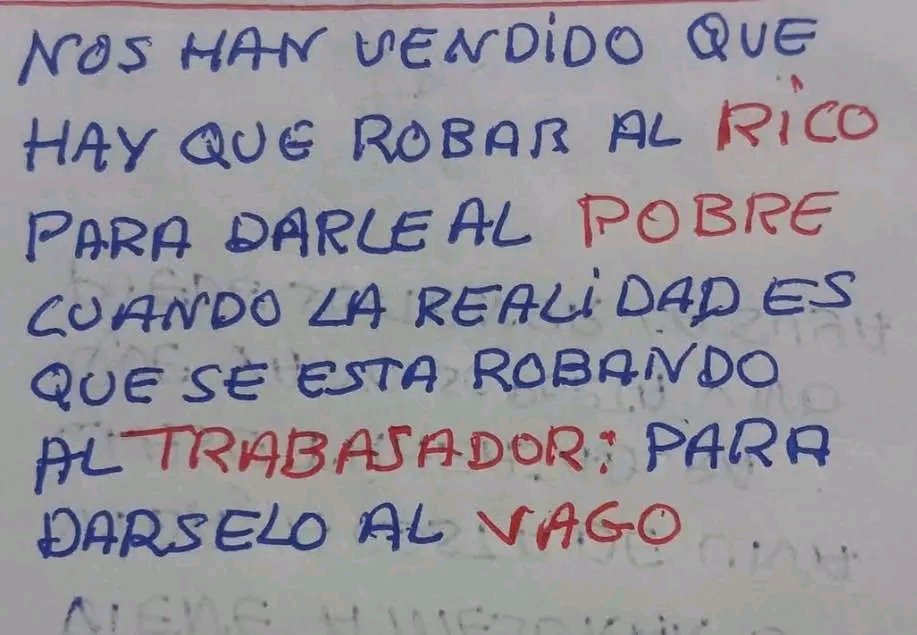 NOS HAN VENDIDO QUE
HAY QUE ROBAR AL RICO
PARA DARLE AL POBRE
CUANDO LA REALIDAD ES
QUE SE ESTA ROBANDO
AL TRABAJADOR: PARA
DARSELO AL VAGO